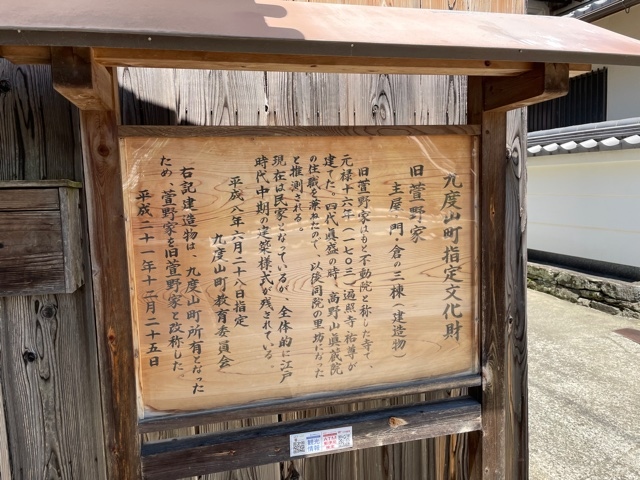 九度山町指定文化財
旧萱野家
主屋・門・倉の三棟(建造物)
旧萱野家はもと不動院と称した寺で、
元禄十六年(一七〇三)遍照寺祐尊が
建てた。四代眞盛の時、高野山眞蔵院
の住職を兼ねたので、以後同院の里坊になった
と推測される。
現在は民家となっているが、全体的に江戸
時代中期の建築様式が残されている。
平成八年六月二十八日指定
九度山町教育委員会
右記建造物は、九度山町所有となった
ため、萱野家を旧萱野家と改称した。
平成二十一年十二月二十五日
観光
情報